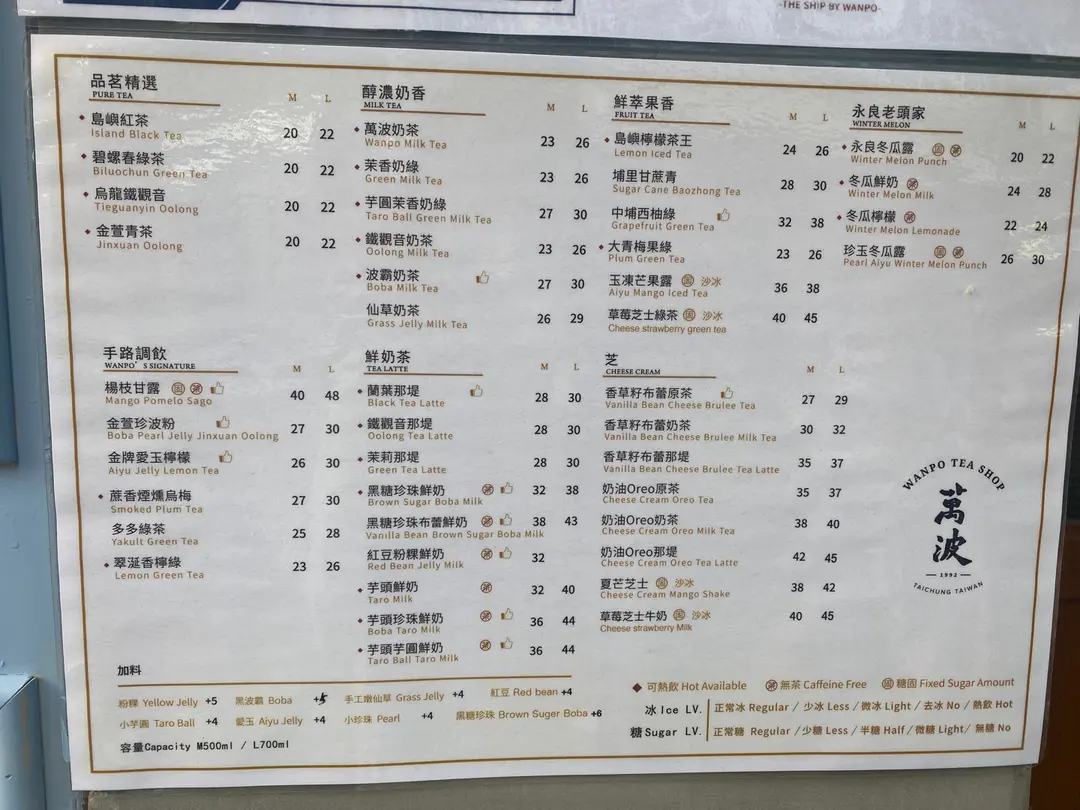 -THE SHIP BY WANPO-
品茗精選
PURE TEA M L
島嶼紅茶
Island Black Tea 20 22
碧螺春綠茶
Biluochun Green Tea 20 22
烏龍鐵觀音
Tieguanyin Oolong 20 22
金萱青茶
Jinxuan Oolong 20 22
醇濃奶香
MILK TEA M L
萬波奶茶
Wanpo Milk Tea 23 26
茉香奶綠
Green Milk Tea 23 26
芋圓茉香奶綠
Taro Ball Green Milk Tea 27 30
鐵觀音奶茶
Oolong Milk Tea 23 26
波霸奶茶
Boba Milk Tea 27 30
仙草奶茶
Grass Jelly Milk Tea 26 29
鮮萃果香
FRUIT TEA M L
島嶼檸檬茶王
Lemon Iced Tea 24 26
埔里甘蔗青
Sugar Cane Baozhong Tea 28 30
中埔西柚綠
Grapefruit Green Tea 32 38
大青梅果綠
Plum Green Tea 23 26
玉凍芒果露 固 沙冰
Aiyu Mango Iced Tea 36 38
草莓芝士綠茶 固 沙冰
Cheese strawberry green tea 40 45
永良老頭家
WINTER MELON M L
永良冬瓜露 固 茶
Winter Melon Punch 20 22
冬瓜鮮奶 茶
Winter Melon Milk 24 28
冬瓜檸檬 茶
Winter Melon Lemonade 22 24
珍玉冬瓜露 固 茶
Pearl Aiyu Winter Melon Punch 26 30
手路調飲
WANPO'S SIGNATURE M L
楊枝甘露 固 茶
Mango Pomelo Sago 40 48
金萱珍波粉
Boba Pearl Jelly Jinxuan Oolong 27 30
金牌愛玉檸檬
Aiyu Jelly Lemon Tea 26 30
蔗香煙燻烏梅
Smoked Plum Tea 27 30
多多綠茶
Yakult Green Tea 25 28
翠涎香檸綠
Lemon Green Tea 23 26
鮮奶茶
TEA LATTE M L
蘭葉那堤
Black Tea Latte 28 30
鐵觀音那堤
Oolong Tea Latte 28 30
茉莉那堤
Green Tea Latte 28 30
黑糖珍珠鮮奶 茶
Brown Sugar Boba Milk 32 38
黑糖珍珠布蕾鮮奶 茶
Vanilla Bean Brown Sugar Boba Milk 38 43
紅豆粉粿鮮奶 茶
Red Bean Jelly Milk 32
芋頭鮮奶 茶
Taro Milk 32 40
芋頭珍珠鮮奶 茶
Boba Taro Milk 36 44
芋頭芋圓鮮奶 茶
Taro Ball Taro Milk 36 44
芝
CHEESE CREAM M L
香草籽布蕾原茶
Vanilla Bean Cheese Brulee Tea 27 29
香草籽布蕾奶茶
Vanilla Bean Cheese Brulee Milk Tea 30 32
香草籽布蕾那堤
Vanilla Bean Cheese Brulee Tea Latte 35 37
奶油Oreo原茶
Cheese Cream Oreo Tea 35 37
奶油Oreo奶茶
Cheese Cream Oreo Milk Tea 38 40
奶油Oreo那堤
Cheese Cream Oreo Tea Latte 42 45
夏芒芝士 固 沙冰
Cheese Cream Mango Shake 38 42
草莓芝士牛奶 固 沙冰
Cheese strawberry Milk 40 45
WANPO TEA SHOP
萬波
1992
TAICHUNG TAIWAN
加料
粉粿 Yellow Jelly +5 黑波霸 Boba 手工嫩仙草 Grass Jelly +4 紅豆 Red bean +4
小芋圓 Taro Ball +4 愛玉 Aiyu Jelly +4 小珍珠 Pearl +4 黑糖珍珠 Brown Suger Boba +6
容量Capacity M500ml / L700ml
可熱飲 Hot Available 茶 無茶 Caffeine Free 固 糖固 Fixed Sugar Amount
冰 Ice LV. 正常冰 Regular / 少冰 Less / 微冰 Light / 去冰 No / 熱飲 Hot
糖Sugar LV. 正常糖 Regular / 少糖 Less / 半糖 Half / 微糖 Light / 無糖 No